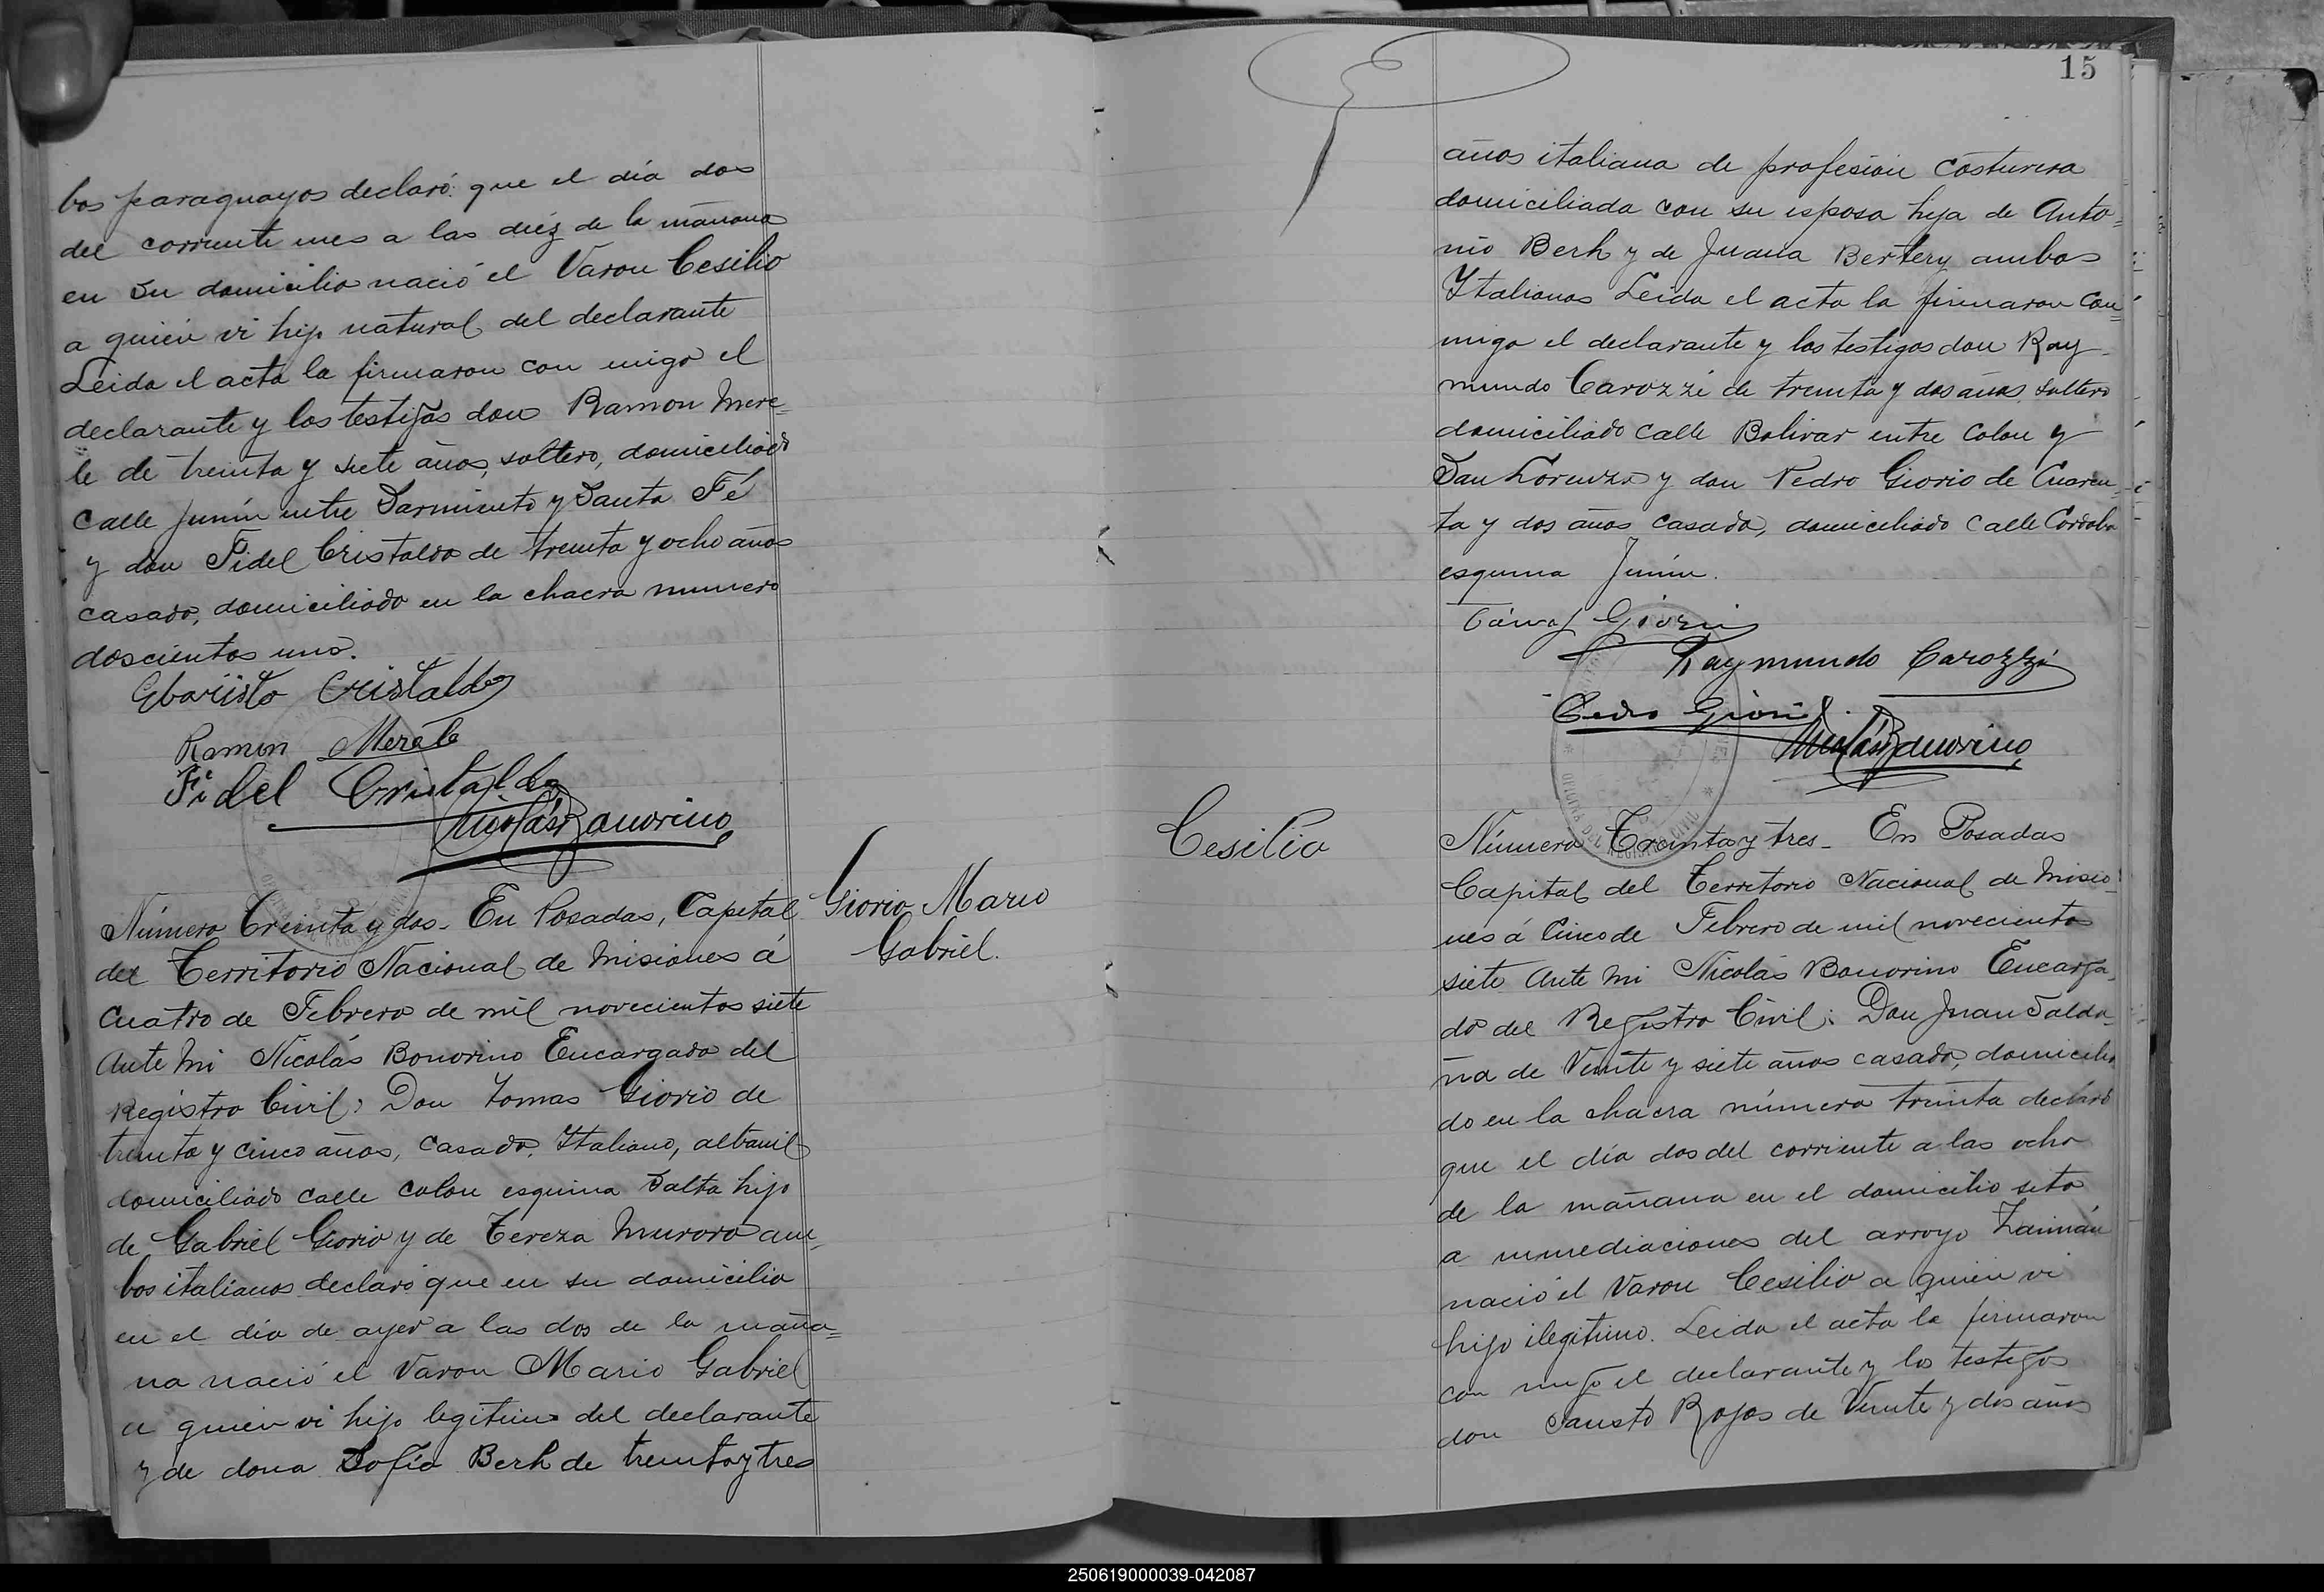 bos paraguayos declaró: que el día dos
del corriente mes a las diéz de la mañana
en su domicilio nació el Varon Cesilio
a quién vi hijo natural del declarante
Leida el acta la firmaron con migo el
declarante y los testigos don Ramon Mere=
le de treinta y siete años, soltero, domiciliado
calle Junín entre Sarmiento y Santa Fé
y don Fidel Cristaldo de treinta y ocho años
casado, domiciliado en la chacra numero
doscientos uno.
Ebaristo Cristaldo
Ramon Merele
Fidel Cristaldo
Nicolás Bonorino
Número Treinta y dos - En Posadas, Capital
del Territorio Nacional de Misiones á
Cuatro de Febrero de mil novecientos siete
Ante Mi Nicolás Bonorino Encargado del
Registro Civil; Don Tomas Giorio de
treinta y cinco años, casado, Italiano, albanil
domiciliado calle Colon esquina Salta hijo
de Gabriel Giorio y de Tereza Muroro am=
bos italianos declaró que en su domicilio
en el día de ayer a las dos de la maña=
na nació el Varon Mario Gabriel
a quien vi hijo legitimo del declarante
y de dona Sofía Berh de treinta y tres
Giorio Mario
Gabriel.
15
años italiana de profesión costurera
domiciliada con su esposo hija de Anto=
nio Berh y de Juana Bertery ambos
Italianos Leida el acta la firmaron con=
migo el declarante y los testigos don Ray
mundo Carozzi de treinta y dos años soltero
domiciliado calle Bolivar entre Colon y
San Lorenzo y don Pedro Giorio de Cuaren=
ta y dos años casado, domiciliado calle Cordoba
esquina Junín.
Giorio
Raymundo Carozzi
Pedro Giorio
Nicolás Bonorino
Cesilio
Número Treinta y tres - En Posadas
Capital del Territorio Nacional de Misio=
nes á Cinco de Febrero de mil novecientos
siete Ante Mi Nicolás Bonorino Encarga=
do del Registro Civil: Don Juan Salda=
ña de Veinte y siete años casado, domicilia
do en la chacra número treinta declaró
que el día dos del corriente a las ocho
de la mañana en el domicilio sito
a inmediaciones del arroyo Zaimán
nació el Varon Cesilio a quien vi
hijo ilegitimo. Leida el acta la firmaron
con migo el declarante y los testigos
don Fausto Rojas de Veinte y dos años
250619000039-042087